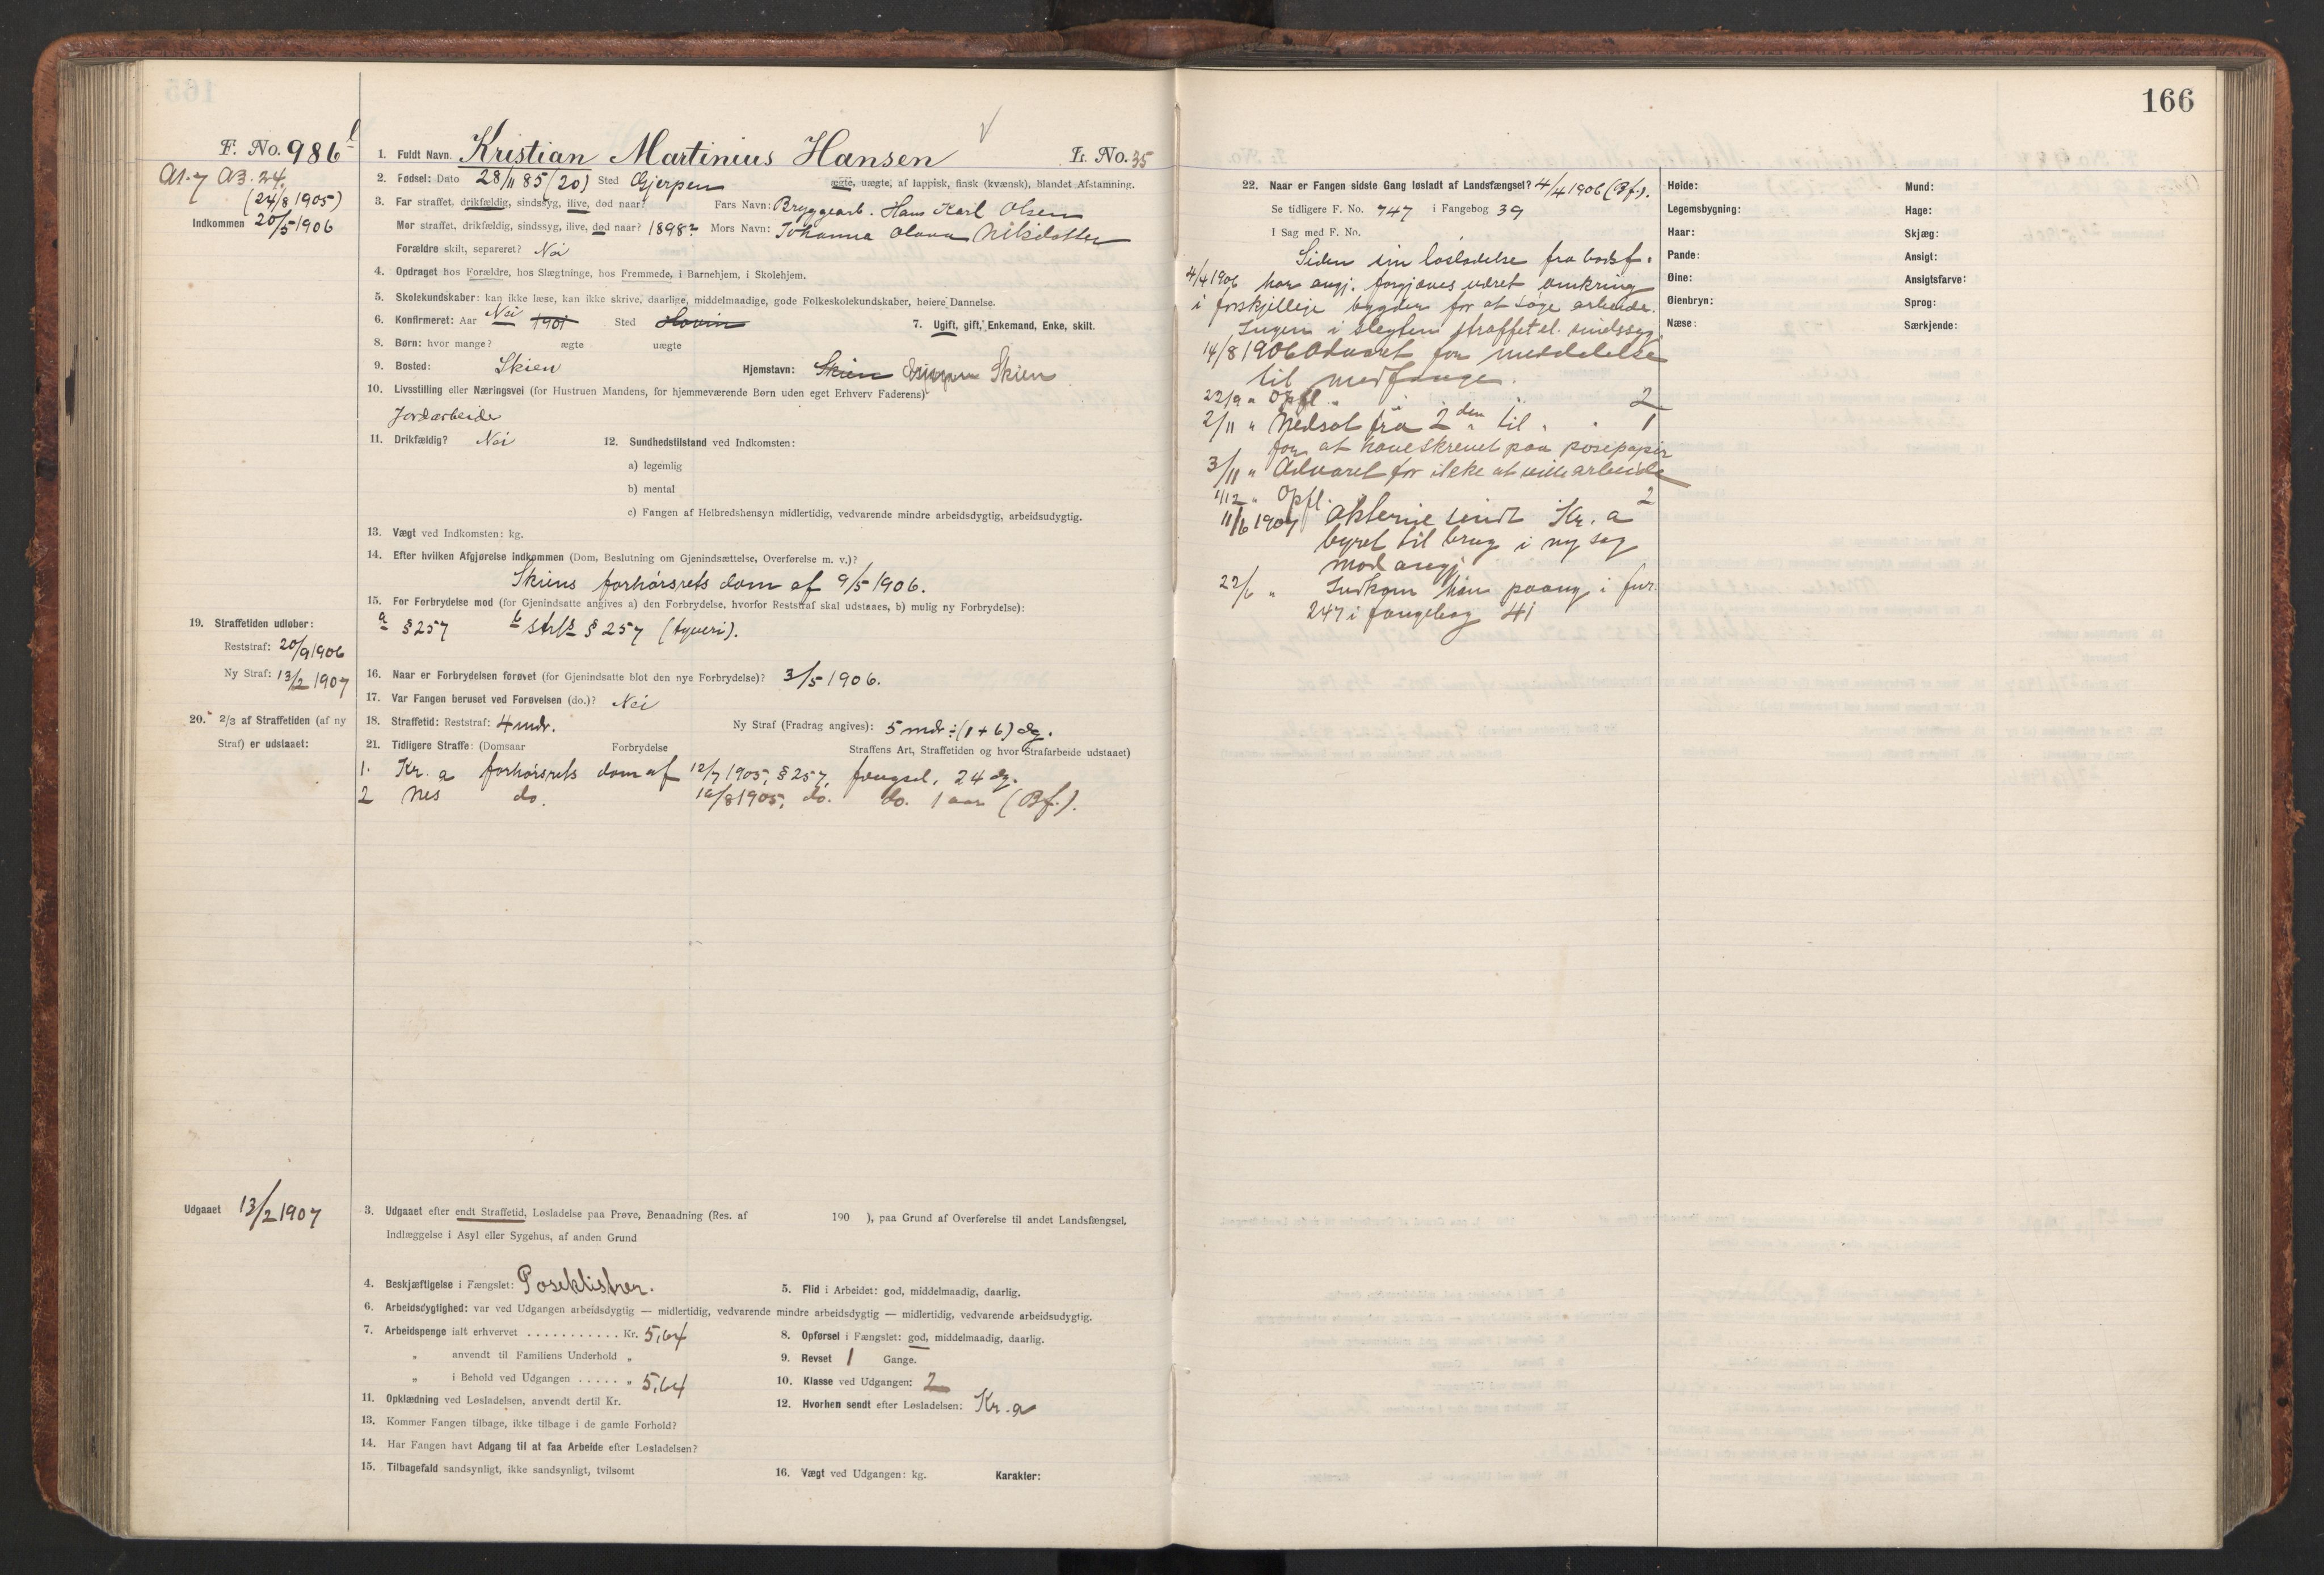 166
F. No. 986 b
A1.7 A3.24.
(24/8 1905)
Indkommen 20/5 1906
1. Fuldt Navn Kristian Martinius Hansen L. No. 35
2. Fødsel: Dato 28/11 85 (20) Sted Gjerpen ægte, uægte, af lappisk, finsk (kvænsk), blandet Afstamning.
3. Far straffet, drikfældig, sindssyg, ilive, død naar? Fars Navn: Bryggearb. Hans Karl Olsen
Mor straffet, drikfældig, sindssyg, ilive, død naar? 1898? Mors Navn: Johanna Olava Nilsdatter
Forældre skilt, separeret? Nei
4. Opdraget hos Forældre, hos Slægtninge, hos Fremmede, i Barnehjem, i Skolehjem.
5. Skolekundskaber: kan ikke læse, kan ikke skrive, daarlige, middelmaadige, gode Folkeskolekundskaber, høiere Dannelse.
6. Konfirmeret: Aar Nei 1901 Sted Hovin 7. Ugift, gift, Enkemand, Enke, skilt.
8. Børn: hvor mange? ægte uægte
9. Bosted: Skien Hjemstavn: Skien Gjerpen Skien
10. Livsstilling eller Næringsvei (for Hustruen Mandens, for hjemmeværende Børn uden eget Erhverv Faderens)
Jordarbeide
11. Drikfældig? Nei 12. Sundhedstilstand ved Indkomsten:
a) legemlig
b) mental
c) Fangen af Helbredshensyn midlertidig, vedvarende mindre arbeidsdygtig, arbeidsudygtig.
13. Vægt ved Indkomsten: kg.
14. Efter hvilken Afgjørelse indkommen (Dom, Beslutning om Gjenindsættelse, Overførelse m. v.)?
Skiens forhörsrets dom af 9/5 1906.
15. For Forbrydelse mod (for Gjenindsatte angives a) den Forbrydelse, hvorfor Reststraf skal udstaaes, b) mulig ny Forbrydelse):
a § 257 b strfls § 257 (tyveri).
19. Straffetiden udløber:
Reststraf: 20/9 1906
Ny Straf: 13/2 1907
16. Naar er Forbrydelsen forøvet (for Gjenindsatte blot den nye Forbrydelse)? 3/5 1906.
17. Var Fangen beruset ved Forøvelsen (do.)? Nei
20. 2/3 af Straffetiden (af ny
Straf) er udstaaet:
18. Straffetid: Reststraf: 4 mdr. Ny Straf (Fradrag angives): 5 mdr ÷ (1+6) dg.
21. Tidligere Straffe: (Domsaar Forbrydelse Straffens Art, Straffetiden og hvor Strafarbeide udstaaet)
1. Kr. a forhörsrets dom af 12/7 1905, § 257, fængsel, 24 dg.
2 Nes do. 19/8 1905, do. do. 1 aar (Bf.).
Udgaaet 13/2 1907
3. Udgaaet efter endt Straffetid, Løsladelse paa Prøve, Benaadning (Res. af 190 ), paa Grund af Overførelse til andet Landsfængsel,
Indlæggelse i Asyl eller Sygehus, af anden Grund
4. Beskjæftigelse i Fængslet: Poseklistrer. 5. Flid i Arbeidet: god, middelmaadig, daarlig.
6. Arbeidsdygtighed: var ved Udgangen arbeidsdygtig — midlertidig, vedvarende mindre arbeidsdygtig — midlertidig, vedvarende arbeidsudygtig.
7. Arbeidspenge ialt erhvervet . . . . . . . . . . . Kr. 5,64 8. Opførsel i Fængslet: god, middelmaadig, daarlig.
„ anvendt til Familiens Underhold „ 9. Revset 1 Gange.
„ i Behold ved Udgangen . . . . . „ 5,64 10. Klasse ved Udgangen: 2
11. Opklædning ved Løsladelsen, anvendt dertil Kr. 12. Hvorhen sendt efter Løsladelsen: Kr. a
13. Kommer Fangen tilbage, ikke tilbage i de gamle Forhold?
14. Har Fangen havt Adgang til at faa Arbeide efter Løsladelsen?
15. Tilbagefald sandsynligt, ikke sandsynligt, tvilsomt 16. Vægt ved Udgangen: kg. Karakter:
22. Naar er Fangen sidste Gang løsladt af Landsfængsel? 4/4 1906 (Bf.).
Se tidligere F. No. 747 i Fangebog 39
I Sag med F. No.
Siden sin løsladelse fra bodsf.
4/4 1906 har angj. forgjæves været omkring
i forskjellige bygder for at søge arbeide.
Ingen i slegten straffet el. sindssyg.
14/8 1906 Advaret for meddelelse
til medfange.
22/9 " Opfl. " " 2
2/11 " Nedsat fra 2 den til " " 1
for at have skrevet paa posepapir
3/11 " Advaret for ikke at ville arbeide
1/12 " Opfl. " 2
11/6 1907 Akterne sendt Kr. a
byret til brug i ny sag
mod angj
22/6 " Indkom han paany i fnr.
247 i fangebog 41
Høide:
Legemsbygning:
Haar:
Pande:
Øine:
Øienbryn:
Næse:
Mund:
Hage:
Skjæg:
Ansigt:
Ansigtsfarve:
Sprog:
Særkjende: